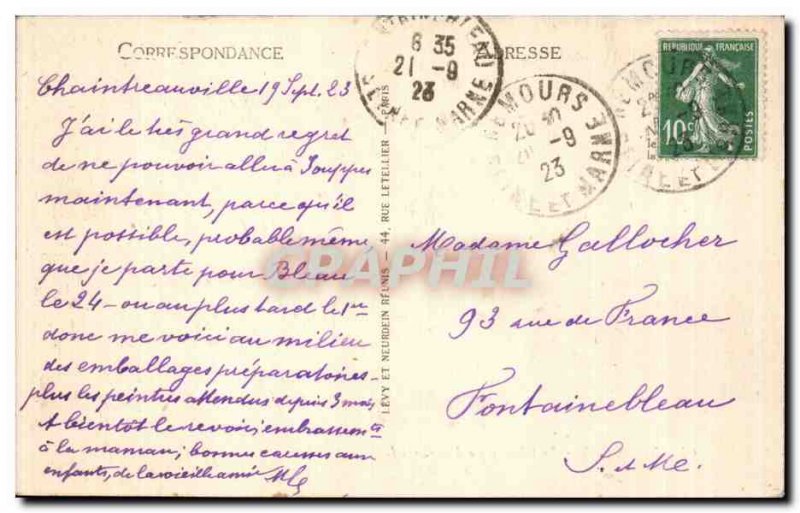 CORRESPONDANCE
ADRESSE
Chaintreauville 19 Sept. 23
J'ai le très grand regret
de ne pouvoir aller à Souppes
maintenant, parce qu'il
est possible, probable même,
que je parte pour Bleau
le 24 - ou au plus tard le 1er
donc me voici au milieu
des emballages préparatoires -
plus les peintres attendus depuis 3 mois
A bientôt le revoir, embrassements
à la maman; bonnes caresses aux
enfants, de la vieille amie
LEVY ET NEURDEIN RÉUNIS - 44, RUE LETELLIER - PARIS
Madame Gallocher
93 rue de France
Fontainebleau
S. & Me.
FONTAINEBLEAU
6 35
21 -9
23
NEMOURS
-9
23
SEINE ET MARNE
REPUBLIQUE FRANÇAISE
10c
POSTES
CPAPHIL